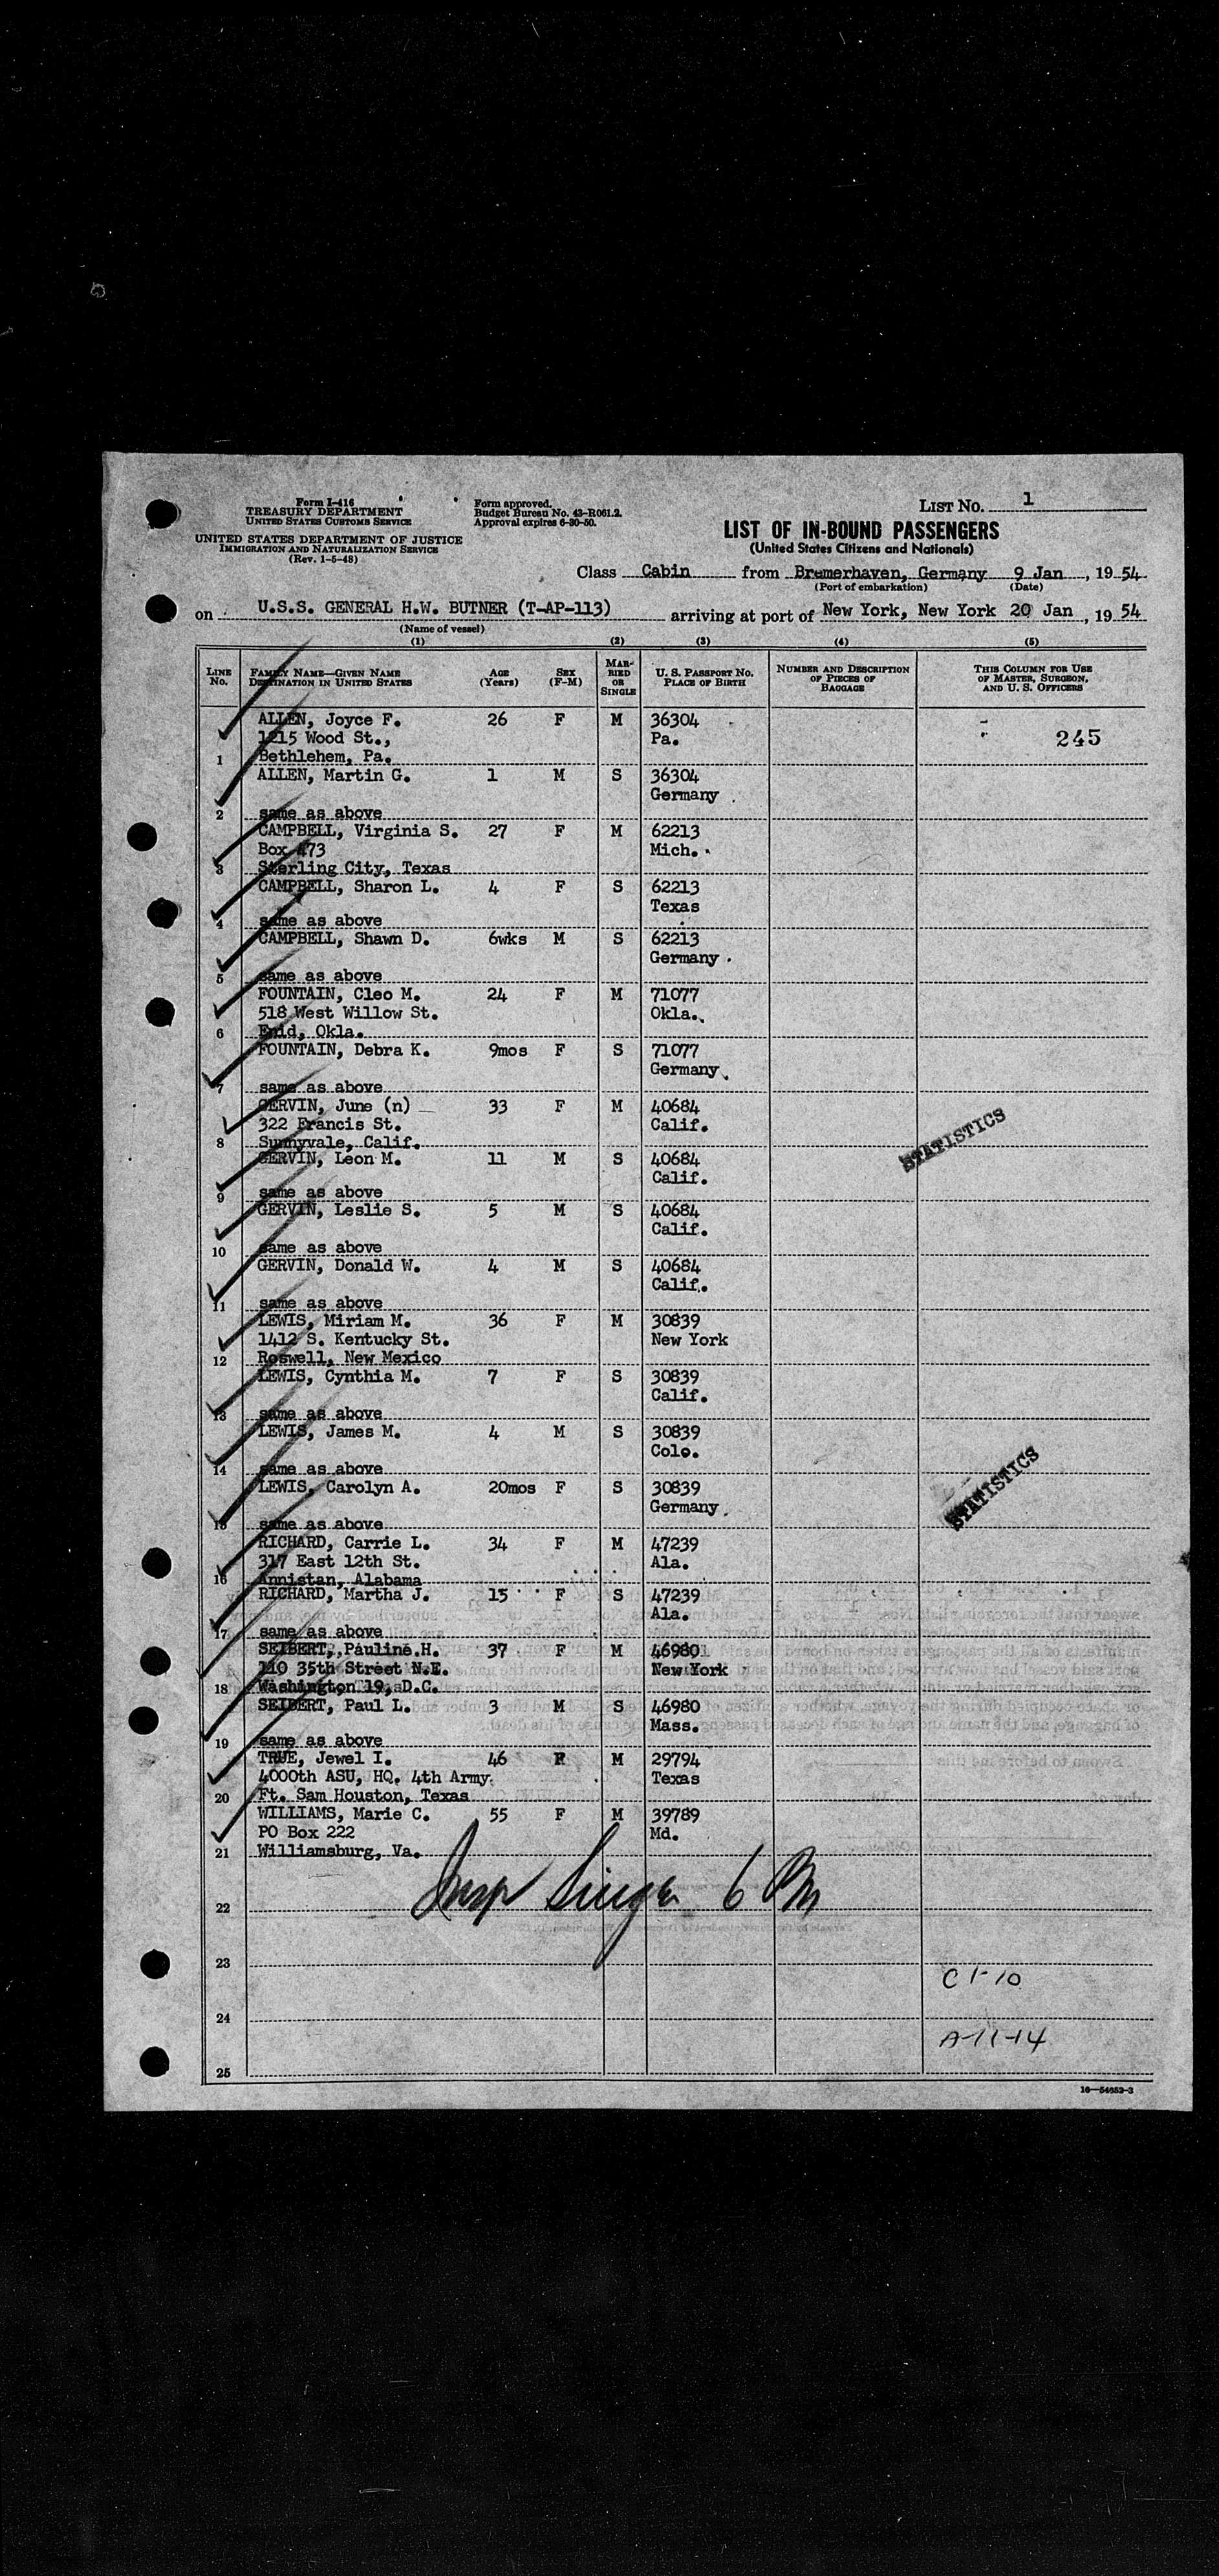 Form I-416
TREASURY DEPARTMENT
UNITED STATES CUSTOMS SERVICE
UNITED STATES DEPARTMENT OF JUSTICE
IMMIGRATION AND NATURALIZATION SERVICE
(Rev. 1-5-48)
Form approved.
Budget Bureau No. 43-R061.2.
Approval expires 6-30-50.
LIST No. 1
LIST OF IN-BOUND PASSENGERS
(United States Citizens and Nationals)
Class Cabin from Bremerhaven, Germany 9 Jan, 1954
(Port of embarkation) (Date)
on U.S.S. GENERAL H.W. BUTNER (T-AP-113) arriving at port of New York, New York 20 Jan, 1954
(Name of vessel)
(1) (2) (3) (4) (5)
LINE No. FAMILY NAME—GIVEN NAME DESTINATION IN UNITED STATES AGE (Years) SEX (F-M) MARRIED OR SINGLE U. S. PASSPORT NO. PLACE OF BIRTH NUMBER AND DESCRIPTION OF PIECES OF BAGGAGE THIS COLUMN FOR USE OF MASTER, SURGEON, AND U. S. OFFICERS
ALLEN, Joyce F. 26 F M 36304
1215 Wood St., Pa. 245
1 Bethlehem, Pa.
ALLEN, Martin G. 1 M S 36304
Germany
2 same as above
CAMPBELL, Virginia S. 27 F M 62213
Box 473 Mich.
3 Sterling City, Texas
CAMPBELL, Sharon L. 4 F S 62213
Texas
4 same as above
CAMPBELL, Shawn D. 6wks M S 62213
Germany
5 same as above
FOUNTAIN, Cleo M. 24 F M 71077
518 West Willow St. Okla.
6 Enid, Okla.
FOUNTAIN, Debra K. 9mos F S 71077
Germany
7 same as above
GERVIN, June (n) 33 F M 40684
322 Francis St. Calif.
8 Sunnyvale, Calif.
STATISTICS
GERVIN, Leon M. 11 M S 40684
Calif.
9 same as above
GERVIN, Leslie S. 5 M S 40684
Calif.
10 same as above
GERVIN, Donald W. 4 M S 40684
Calif.
11 same as above
LEWIS, Miriam M. 36 F M 30839
1412 S. Kentucky St. New York
12 Roswell, New Mexico
LEWIS, Cynthia M. 7 F S 30839
Calif.
13 same as above
LEWIS, James M. 4 M S 30839
Colo.
14 same as above
LEWIS, Carolyn A. 20mos F S 30839
Germany
STATISTICS
15 same as above
RICHARD, Carrie L. 34 F M 47239
317 East 12th St. Ala.
16 Annistan, Alabama
RICHARD, Martha J. 15 F S 47239
Ala.
17 same as above
SEIBERT, Pauline H. 37 F M 46980
110 35th Street N.E. New York
18 Washington 19, D.C.
SEIBERT, Paul L. 3 M S 46980
Mass.
19 same as above
TRUE, Jewel I. 46 F M 29794
4000th ASU, HQ. 4th Army Texas
20 Ft. Sam Houston, Texas
WILLIAMS, Marie C. 55 F M 39789
PO Box 222 Md.
21 Williamsburg, Va.
Insp 6 Pm
22
23
C 1-10
24
A-11-14
25
16—54652-3